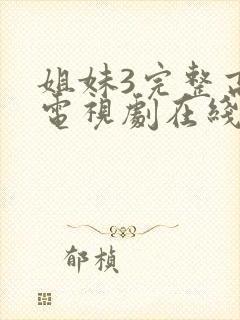 姐妹3完整
電視劇在綫
郁楨